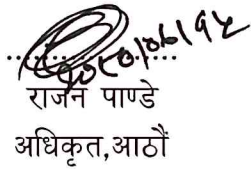 २०८०/०६/१५
राजन पाण्डे
अधिकृत,आठौं